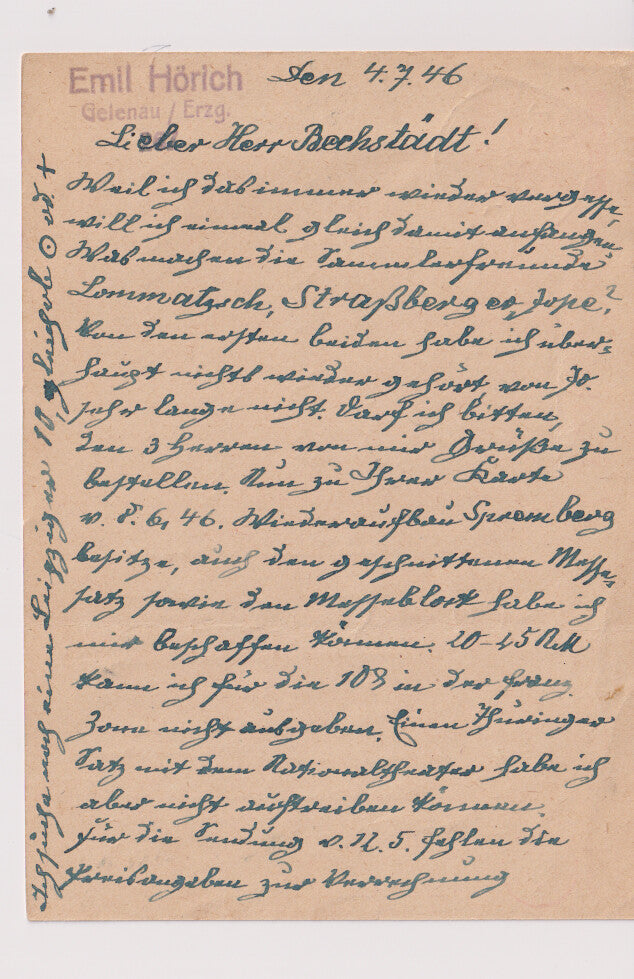 Emil Hörich
Gelenau / Erzg.
Den 4.7.46
Lieber Herr Bechstädt!
Weil ich das immer wieder vergesse,
will ich einmal gleich damit anfangen.
Was machen die Sammlerfreunde
Lommatzsch, Straßberger, Jope?
Von den ersten beiden habe ich über-
haupt nichts wieder gehört von Jo.
sehr lange nicht. Darf ich bitten,
den 3 Herren von mir Grüße zu
bestellen. Nun zu Ihrer Karte
v. 8.6.46. Wiederaufbau Spremberg
besitze, auch den geschnittenen Messe-
satz sowie den Messeblock habe ich
mir beschaffen können. 20-45 RM
kann ich für die 10 in der franz.
Zone nicht ausgeben. Einen Thüringer
Satz mit dem Nationaltheater habe ich
aber nicht auftreiben können.
Für die Sendung v. 12.5. fehlen die
Preisangaben zur Verrechnung
Ich suche noch eine Leipziger 10, gleich ob ⊙ od. +